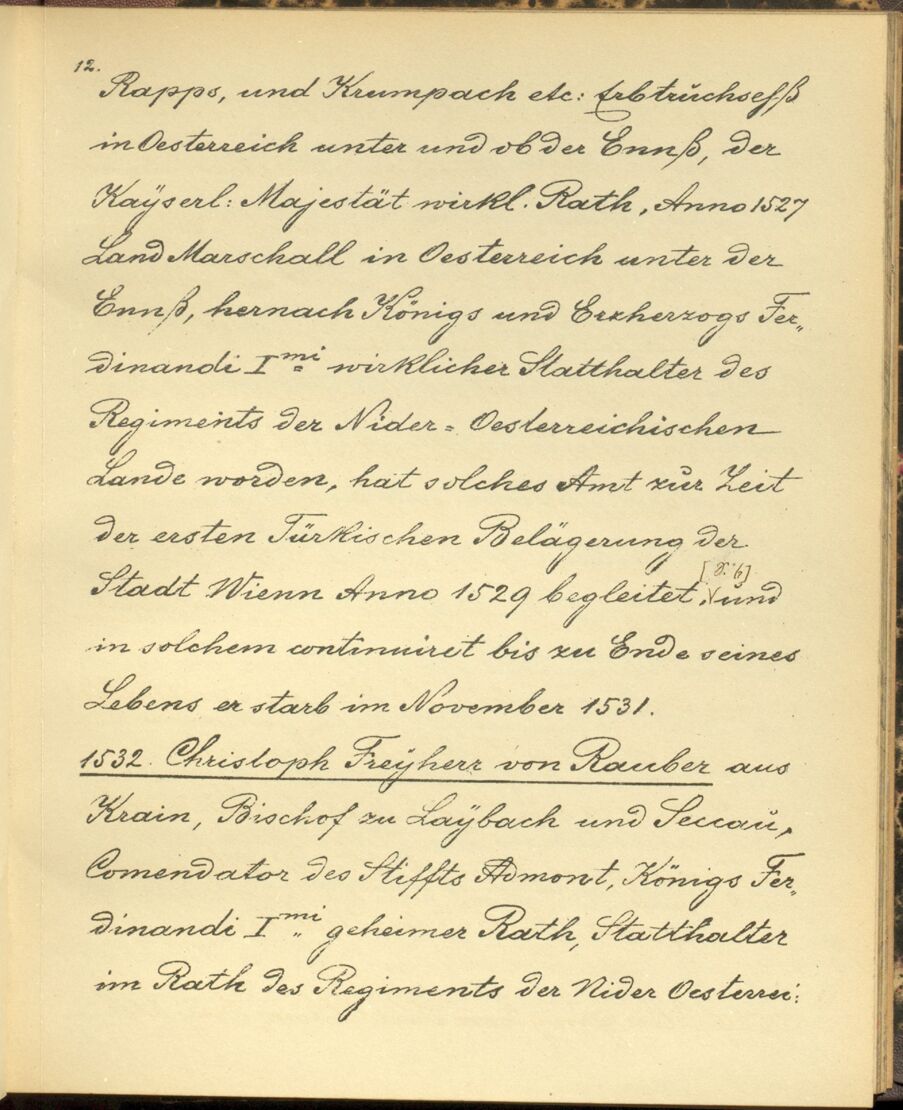 12.
Rapps, und Krumpach etc: Erbtruchseſß
in Oesterreich unter und ob der Ennß, der
Kaÿserl: Majestät wirkl. Rath, Anno 1527
Land Marschall in Oesterreich unter der
Ennß, hernach Königs und Erzherzogs Fer„
dinandi I mi wirklicher Statthalter des
Regiments der Nider= Oesterreichischen
Lande worden, hat solches Amt zur Zeit
der ersten Türkischen Belägerung der
Stadt Wienn Anno 1529 begleitet, und
in solchem continuiret bis zu Ende seines
Lebens er starb im November 1531.
1532. Christoph Freÿherr von Rauber aus
Krain, Bischof zu Laÿbach und Seccau,
Comendator des Stiffts Admont, Königs Fer„
dinandi I mi geheimer Rath, Statthalter
im Rath des Regiments der Nider Oesterrei: